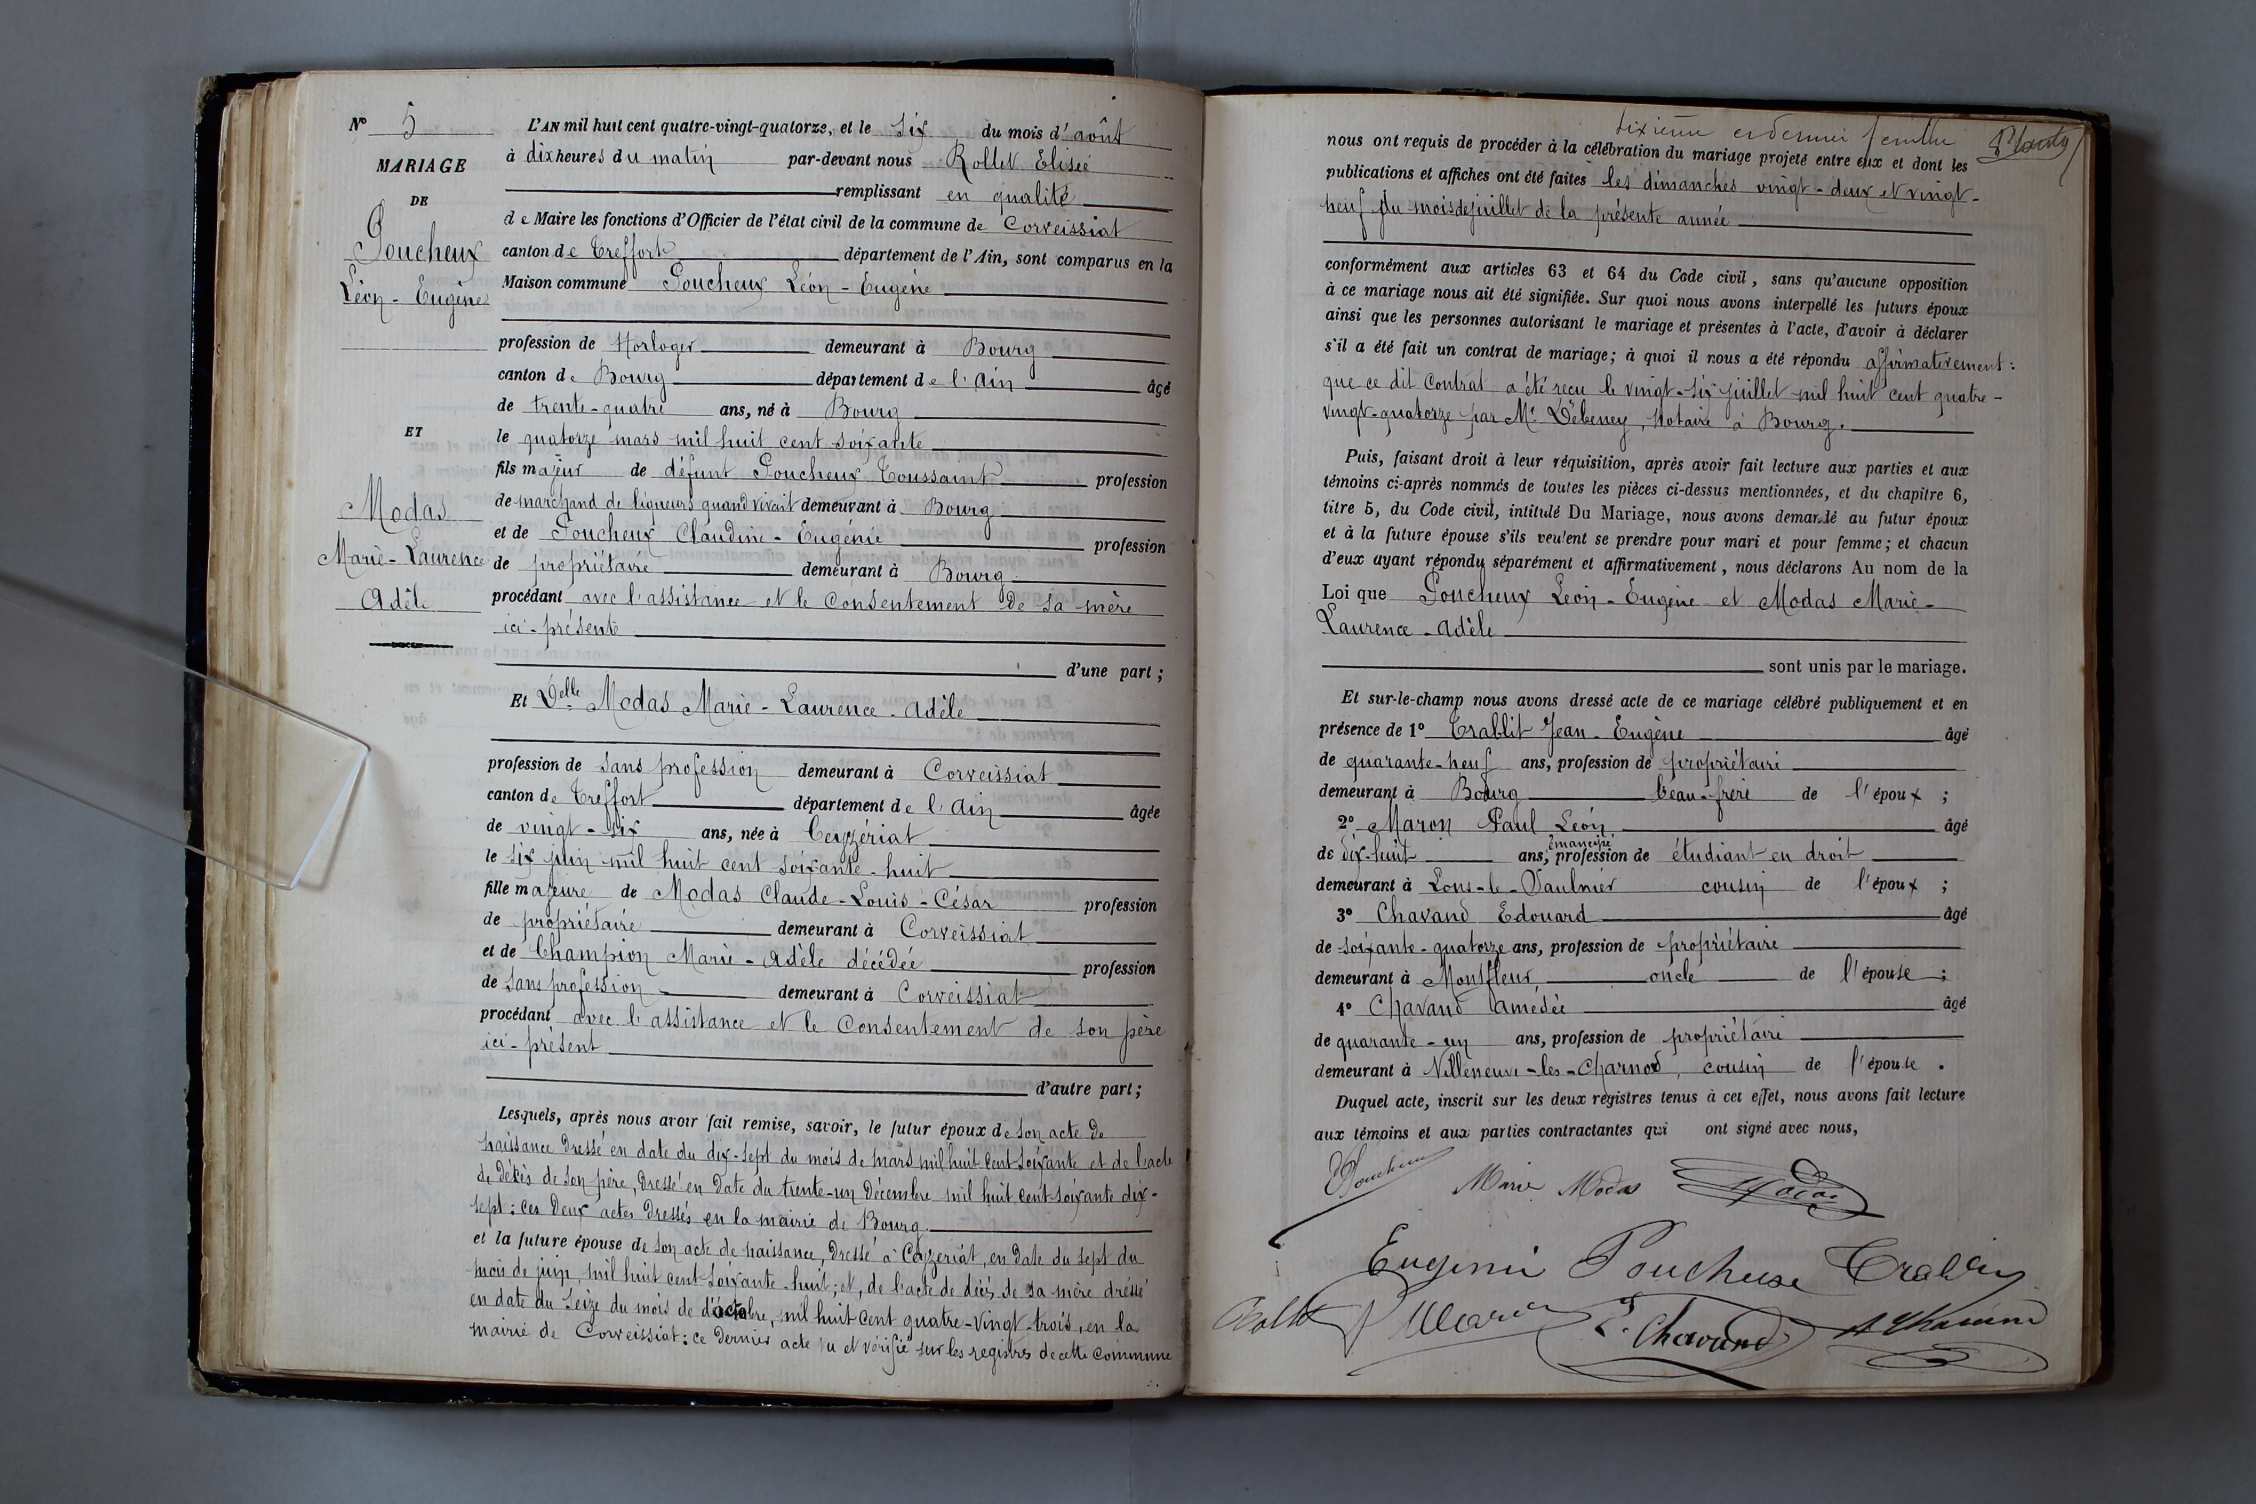 N° 5
MARIAGE
DE
Poucheux
Léon - Eugène
ET
Modas
Marie - Laurence
Adèle
L'AN mil huit cent quatre-vingt-quatorze, et le six du mois d'août
à dix heures du matin par-devant nous Rollet Elisée
remplissant en qualité
de Maire les fonctions d'Officier de l'état civil de la commune de Corveissiat
canton de Treffort département de l'Ain, sont comparus en la
Maison commune Poucheux Léon - Eugène
profession de Horloger demeurant à Bourg
canton de Bourg département de l'Ain âgé
de trente-quatre ans, né à Bourg
le quatorze mars mil huit cent soixante
fils majeur de défunt Poucheux Toussaint profession
de marchand de liqueurs quand vivait demeurant à Bourg
et de Poucheux Claudine - Eugénie profession
de propriétaire demeurant à Bourg
procédant avec l'assistance et le consentement de sa mère
ici - présente
d'une part ;
Et Delle Modas Marie - Laurence - Adèle
profession de sans profession demeurant à Corveissiat
canton de Treffort département de l'Ain âgée
de vingt - six ans, née à Ceyzériat
le six juin mil huit cent soixante - huit
fille majeure de Modas Claude - Louis - César profession
de propriétaire demeurant à Corveissiat
et de Champion Marie - Adèle décédée profession
de sans profession demeurant à Corveissiat
procédant avec l'assistance et le consentement de son père
ici - présent
d'autre part ;
Lesquels, après nous avoir fait remise, savoir, le futur époux de son acte de
naissance dressé en date du dix-sept du mois de mars mil huit cent soixante et de l'acte
de décès de son père, dressé en date du trente-un décembre mil huit cent soixante dix-
sept : ces deux actes dressés en la mairie de Bourg.
et la future épouse de son acte de naissance, dressé à Ceyzeriat, en date du sept du
mois de juin, mil huit cent soixante - huit ; et, de l'acte de décès de sa mère dressé
en date du seize du mois de d'octobre, mil huit cent quatre-vingt-trois, en la
mairie de Corveissiat : ce dernier acte vu et vérifié sur les registres de cette commune
sixième et dernier feuillet
nous ont requis de procéder à la célébration du mariage projeté entre eux et dont les
publications et affiches ont été faites les dimanches vingt - deux et vingt -
neuf du mois de juillet de la présente année
conformément aux articles 63 et 64 du Code civil, sans qu'aucune opposition
à ce mariage nous ait été signifiée. Sur quoi nous avons interpellé les futurs époux
ainsi que les personnes autorisant le mariage et présentes à l'acte, d'avoir à déclarer
s'il a été fait un contrat de mariage ; à quoi il nous a été répondu affirmativement :
que ce dit Contrat a été reçu le vingt-six juillet mil huit cent quatre -
vingt-quatorze par Me Débeney, notaire à Bourg.
Puis, faisant droit à leur réquisition, après avoir fait lecture aux parties et aux
témoins ci-après nommés de toutes les pièces ci-dessus mentionnées, et du chapitre 6,
titre 5, du Code civil, intitulé Du Mariage, nous avons demandé au futur époux
et à la future épouse s'ils veulent se prendre pour mari et pour femme ; et chacun
d'eux ayant répondu séparément et affirmativement, nous déclarons Au nom de la
Loi que Poucheux Léon - Eugène et Modas Marie -
Laurence - Adèle
sont unis par le mariage.
Et sur-le-champ nous avons dressé acte de ce mariage célébré publiquement et en
présence de 1° Trablit Jean - Eugène âgé
de quarante-neuf ans, profession de propriétaire
demeurant à Bourg beau-frère de l'époux ;
2° Maron Paul Léon âgé
émancipé
de dix-huit ans, profession de étudiant en droit
demeurant à Lons-le-Saulnier cousin de l'époux ;
3° Chavand Edouard âgé
de soixante-quatorze ans, profession de propriétaire
demeurant à Montfleur oncle de l'épouse ;
4° Chavand Amédée âgé
de quarante - un ans, profession de propriétaire
demeurant à Villeneuve-les-Charnod, cousin de l'épouse .
Duquel acte, inscrit sur les deux registres tenus à cet effet, nous avons fait lecture
aux témoins et aux parties contractantes qui ont signé avec nous,
Marie Modas Modas
Eugénie Poucheux Trablit
Rollet P Maron E. Chavand